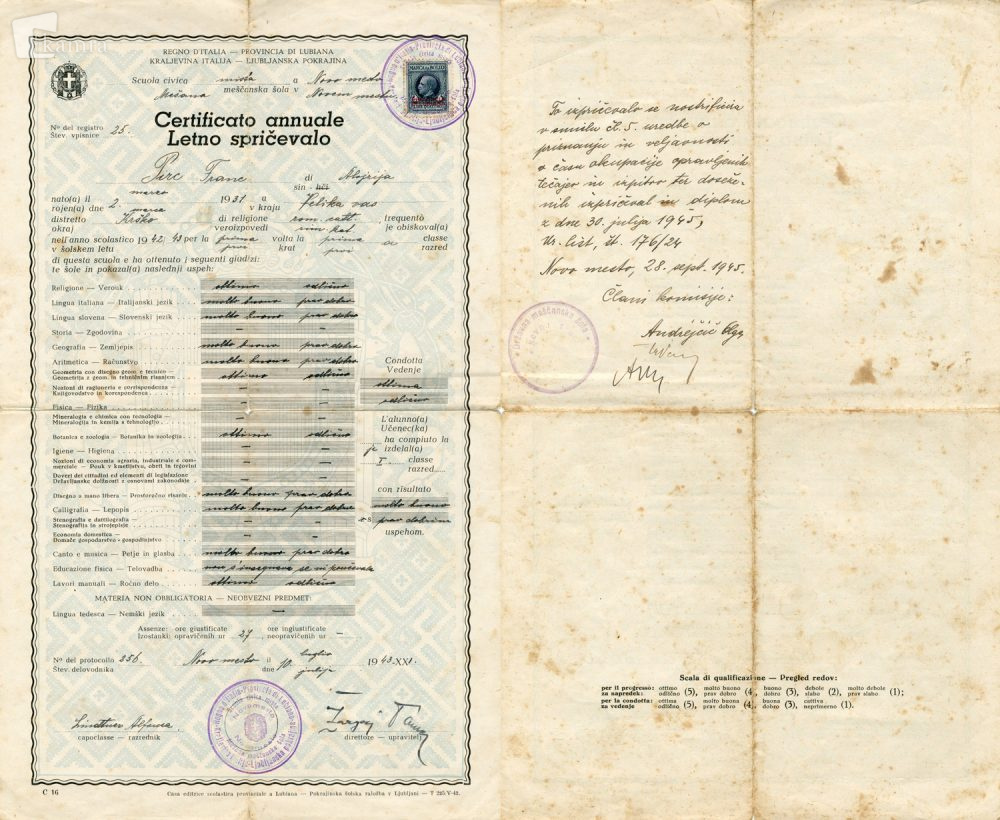 kamra
REGNO D'ITALIA — PROVINCIA DI LUBIANA
KRALJEVINA ITALIJA — LJUBLJANSKA POKRAJINA
Scuola civica mista a Novo mesto
Mešana meščanska šola v Novem mestu
MARCA DA BOLLO
Certificato annuale
Letno spričevalo
Nº del registro
Štev. vpisnice 25.
Pirc Franc di Alojzija
sin - hči
nato(a) il marzo
rojen(a) dne 2. marca 1931 a
v kraju Velika vas
distretto Krško di religione rom. catt. frequentò
okraj veroizpovedi rom. kat. je obiskoval(a)
nell'anno scolastico 1942/43 per la prima volta la prima a classe
v šolskem letu prvi krat prvi razred
di questa scuola e ha ottenuto i seguenti giudizi:
te šole in pokazal(a) naslednji uspeh:
Religione — Verouk ottimo odlično
Lingua italiana — Italijanski jezik molto buono prav dobro
Lingua slovena — Slovenski jezik molto buono prav dobro
Storia — Zgodovina — —
Geografia — Zemljepis molto buono prav dobro
Aritmetica — Računstvo molto buono prav dobro
Geometria con disegno geom. e tecnico —
Geometrija z geom. in tehničnim risanjem ottimo odlično
Nozioni di ragioneria e corrispondenza —
Knjigovodstvo in korespondenca — —
Fisica — Fizika — —
Mineralogia e chimica con tecnologia —
Mineralogija in kemija s tehnologijo — —
Botanica e zoologia — Botanika in zoologija ottimo odlično
Igiene — Higiena — —
Nozioni di economia agraria, industriale e commerciale — Pouk v kmetijstvu, obrti in trgovini — —
Doveri dei cittadini ed elementi di legislazione —
Državljanske dolžnosti z osnovami zakonodaje — —
Disegno a mano libera — Prostoročno risanje molto buono prav dobro
Calligrafia — Lepopis molto buono prav dobro
Stenografia e dattilografia —
Stenografija in strojepisje — —
Economia domestica —
Domače gospodarstvo - gospodinjstvo — —
Canto e musica — Petje in glasba molto buono prav dobro
Educazione fisica — Telovadba non s'insegnava se ni poučevala
Lavori manuali — Ročno delo ottimo odlično
Condotta
Vedenje
ottima
odlično
L'alunno(a)
Učenec(ka)
ha compiuto la
je izdelal(a)
I. classe
razred
con risultato
molto buono
z s prav dobrim
uspehom.
MATERIA NON OBBLIGATORIA — NEOBVEZNI PREDMET:
Lingua tedesca — Nemški jezik —
Assenze: ore giustificate ore ingiustificate
Izostanki: opravičenih ur 27, neopravičenih ur —
Nº del protocollo
Štev. delovodnika 256. Novo mesto il
dne 10. luglio
julija 1943-XXI.
Lindtner Alfonza
capoclasse - razrednik
direttore - upravitelj
C 16
Casa editrice scolastica provinciale a Lubiana — Pokrajinska šolska založba v Ljubljani — T 225/V-42.
To izpričevalo se nostrificira
v smislu čl. 5. uredbe o
priznanju in veljavnosti
v času okupacije opravljenih
tečajev in izpitov ter doseže-
nih izpričeval in diplom
z dne 30. julija 1945,
Ur. list, št. 176/24
Novo mesto, 28. sept. 1945.
Člani komisije:
Andrejčič Olga
Scala di qualificazione — Pregled redov:
per il progresso: ottimo (5), molto buono (4), buono (3), debole (2), molto debole (1);
za napredek: odlično prav dobro dobro slabo prav slabo
per la condotta: ottima (5), molto buona (4), buona (3), cattiva (1).
za vedenje odlično prav dobro dobro neprimerno